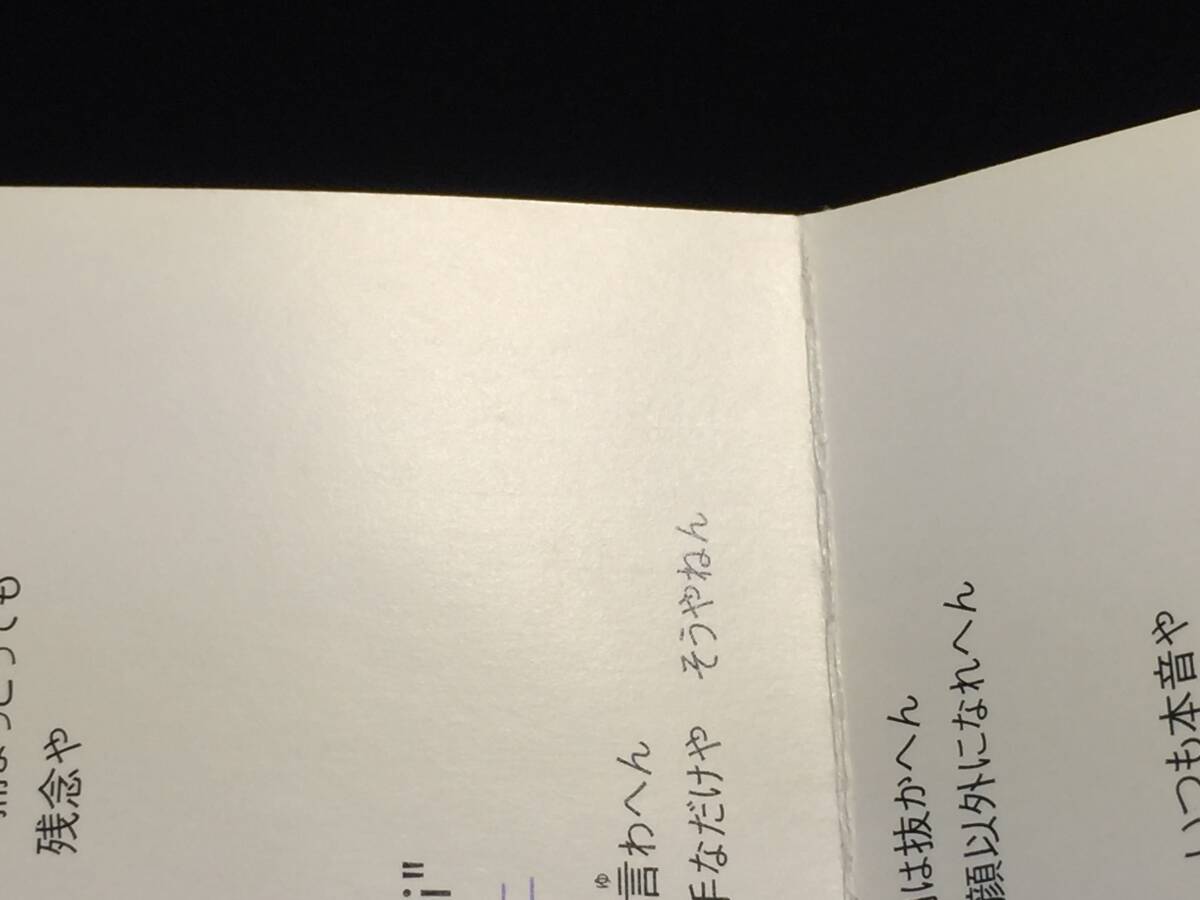 ても
残念や
i"
ゆ
言わへん
手なだけや　そうやねん
は抜かへん
顔以外になれへん
いつも本音や